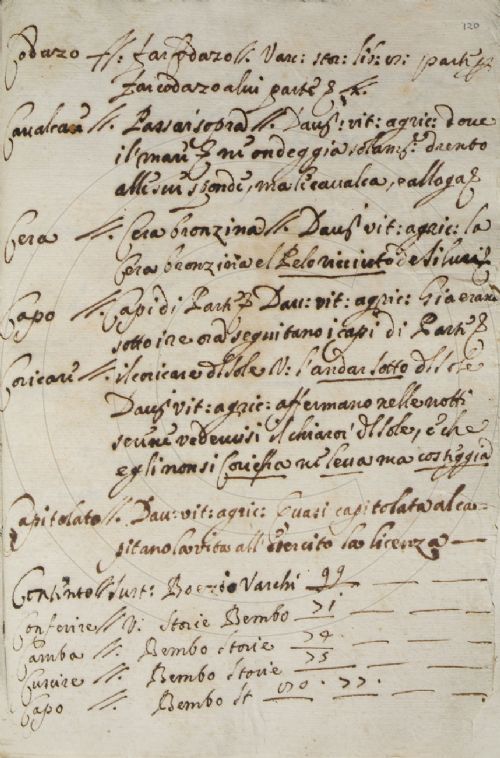 120
Codazo //. far codazo //. Varc: stor: lib:
far codazo alui parte
Cavalcare //. Passar sopra //. Dau: vit: agric: dove
il mare ni ondeggia solam: drento
alli sui sponde, ma li cavalca, e alloga
Cera //. Cera bronzina //. Dau: vit: agric: la
Cera bronzina el Pelo ricciuto de Siluri
Capo //. Capi di Parte Dau: vit: agric: Gia erano
sotto i re ora seguitano i capi di Parte
Coricare //. il coricare del sole V: l'andar sotto del sole
Dau: vit: agric: affermano nelle notti
serene vedervisi il chiaror del sole, e che
egli non si Coricha ne leva ma costeggia
Capitolato //. Dau: vit: agric: Quasi capitolata alca-
pitano la vita all'Esercito la licenza —
Contento // sust: Boezio Varchi 99
Conferire // V: Storie Bembo 71
Gamba //. Bembo Storie 74
Bembo Storie 75
Capo //. Bembo St 77.